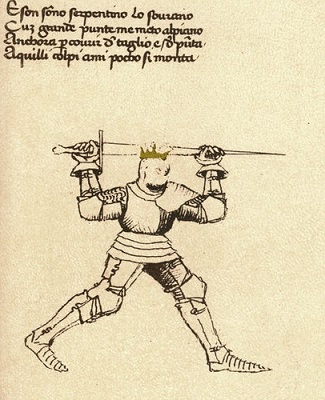 E son sono serpentino lo sourano
Cuz grande punte me meto alpiano
Anchora p courir d' taglio e d' pūta
Aquilli colpi ami pocho si monta